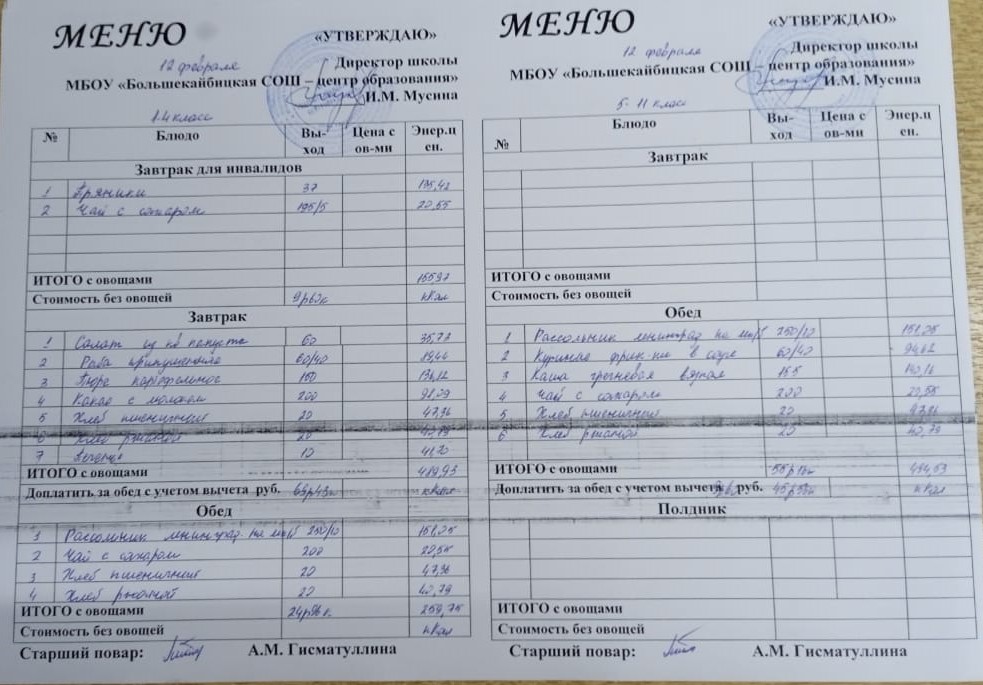 МЕНЮ
«УТВЕРЖДАЮ»
12 февраля
Директор школы
МБОУ «Большекайбицкая СОШ – центр образования»
И.М. Мусина
1-4 класс
№ Блюдо Вы-ход Цена с ов-ми Энер.ц ен.
Завтрак для инвалидов
1 Пряники 37 135,42
2 Чай с сахаром 195/5 20,55
ИТОГО с овощами 15597
Стоимость без овощей 9р62к кКал
Завтрак
1 Салат из капусты 60 35,73
2 Рыба припущенная 60/40
3 Пюре картофельное 150
4 Какао с молоком 200
5 Хлеб пшеничный 20 47,36
6 Хлеб ржаной 20 40,79
7 Печенье 10
ИТОГО с овощами 419,93
Доплатить за обед с учетом вычета руб. кКал
Обед
1 Рассольник ленинград. на м/к/б 250/10 151,05
2 Чай с сахаром 200 20,55
3 Хлеб пшеничный 20 47,36
4 Хлеб ржаной 20 40,79
ИТОГО с овощами 24р96к 259,75
Стоимость без овощей кКал
Старший повар: А.М. Гисматуллина
МЕНЮ
«УТВЕРЖДАЮ»
12 февраля
Директор школы
МБОУ «Большекайбицкая СОШ – центр образования»
И.М. Мусина
5-11 класс
№ Блюдо Вы-ход Цена с ов-ми Энер.ц ен.
Завтрак
ИТОГО с овощами
Стоимость без овощей
Обед
1 Рассольник ленинград на м/к/б 250/10 151,05
2 Куриные фрик-ли в соусе 60/40 94,62
3 Каша гречневая вязкая 155
4 Чай с сахаром 200 20,55
5 Хлеб пшеничный 20 47,36
6 Хлеб ржаной 20 40,79
ИТОГО с овощами 494,53
Доплатить за обед с учетом вычета руб. кКал
Полдник
ИТОГО с овощами
Стоимость без овощей
Старший повар: А.М. Гисматуллина